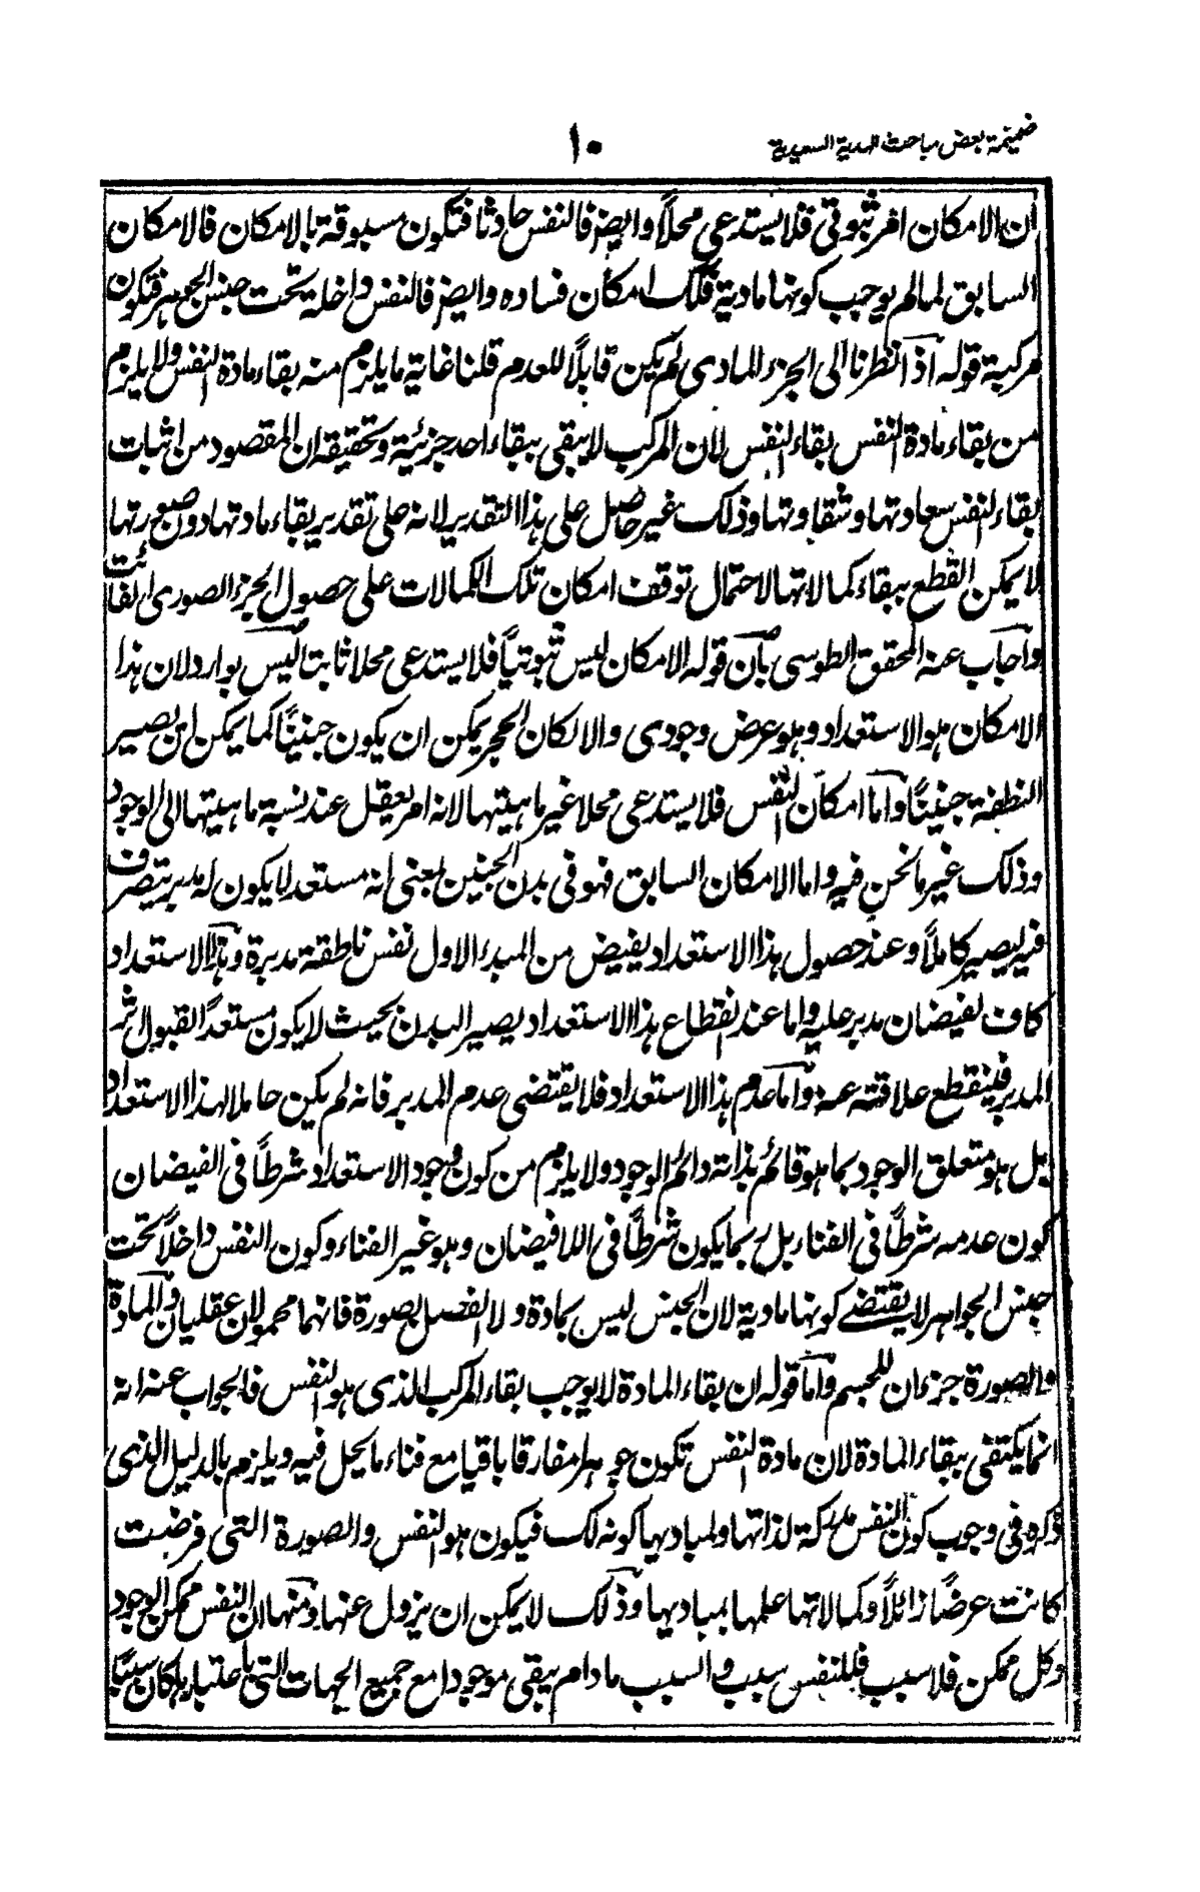 ضميمة بعض مباحث الهدية السعيدية
١٠
ان الامكان امر ثبوتي فلا يستدعي محلاً وايضا فالنفس حادثا فتكون مسبوقة بالامكان فالامكان
السابق لما لم يوجب كونها مادية فكذلك امكان فساده وايضا فالنفس داخلة تحت جنس الجوهر فتكون
مركبة قوله اذ انظرنا الى الجزء المادي لم يكن قابلاً للعدم قلنا غاية ما يلزم منه بقاء مادة النفس ولا يلزم
من بقاء مادة النفس بقاء النفس لان المركب لا يبقى ببقاء احد جزئية وتحقيقه ان المقصود من اثبات
بقاء النفس سعادتها وشقاوتها وذلك غير حاصل على هذا التقدير لانه على تقدير بقاء مادتها دون صورتها
لا يمكن القطع ببقاء كمالاتها لاحتمال توقف امكان تلك الكمالات على حصول الجزء الصوري الفائت
واجاب عنه المحقق الطوسي بان قوله الامكان ليس ثبوتياً فلا يستدعي محلا ثابتا ليس بوارد لان هذا
الامكان هو الاستعداد وهو عرض وجودي والا لكان الحجر يمكن ان يكون جنيناً كما يمكن ان يصير
النطفة جنيناً واما امكان النفس فلا يستدعي محلا غير ماهيتها لانه امر يعقل عند نسبة ماهيتها الى الوجود
وذلك غير ما نحن فيه واما الامكان السابق فهو في بدن الجنين بمعنى انه مستعد لا يكون له مدبر يتصرف
فيه ليصير كاملاً وعند حصول هذا الاستعداد يفيض من المبدء الاول نفس ناطقة مدبرة وهذا الاستعداد
كاف لفيضان مدبر عليه واما عند انقطاع هذا الاستعداد يصير البدن بحيث لا يكون مستعداً لقبول اثر
المدبر فينقطع علاقته عنه واما عدم هذا الاستعداد فلا يقتضي عدم المدبر فانه لم يكن حاملا لهذا الاستعداد
بل هو متعلق الوجود بما هو قائم بذاته دائم الوجود ولا يلزم من كون وجود الاستعداد شرطاً في الفيضان
كون عدمه شرطاً في الفناء بل ربما يكون شرطاً في اللا فيضان وهو غير الفناء وكون النفس داخلاً تحت
جنس الجواهر لا يقتضي كونها مادية لان الجنس ليس بمادة ولا الفصل بصورة فانهما محمولان عقليان والمادة
والصورة جزءان للجسم واما قوله ان بقاء المادة لا يوجب بقاء المركب الذي هو النفس فالجواب عنه انه
انما يكتفى ببقاء المادة لان مادة النفس تكون جوهرا مفارقا باقيا مع فناء ما يحل فيه ويلزم بالدليل الذي
ذكره في وجوب كون النفس مدركة لذاتها ولمباديها كونه لك فيكون هو النفس والصورة التي فرضت
كانت عرضاً زائلاً وكمالاتها علمها بمباديها وذلك لا يمكن ان يزول عنها ومنها ان النفس ممكن الوجود
وكل ممكن فلا سبب فللنفس سبب والسبب ما دام يبقى موجودا مع جميع الجهات التي باعتبارها كان سببا